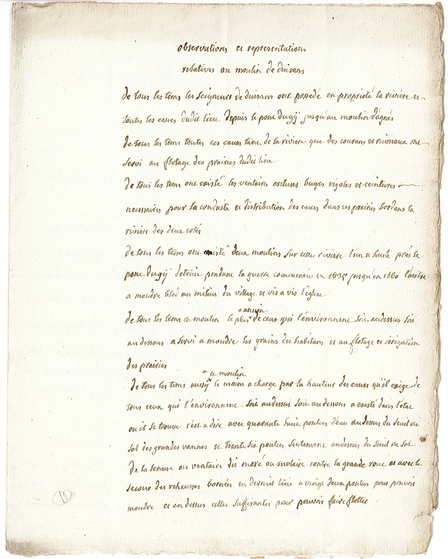 observations et representations
relatives au moulin de duisans
de tous les tems les seigneurs de duisans ont possedé en proprieté la riviere et
toutes les eaues dudit lieu depuis le pont dugÿ jusqu'au moulin d'agnés
de tous les tems toutes ces eaues tant de la riviere que des courans et ruisseaux ont
servi au flotage des prairies dudit lieu
de tous les tems ont existé les ventaires ostures buges rigoles et ceintures
necessaires pour la conduite et distribution des eaues dans ces prairies bordans la
riviere des deux cotés
de tous les tems ont existé deux moulins sur cette riviere l'un a huile prés le
pont dugÿ detruit pendant la guerre commencée en 1635 jusqu'en 1660 l'autre
a moudre bled au milieu du village et vis a vis l'eglise
de tous les tems ce moulin le plus ancien de ceux qui l'environnent soit audessus soit
audessous a servi a moudre les grains des habitans et au flotage et irrigation
des prairies
de tous les tems aussÿ ce moulin le moins a charge par la hauteur des eaues qu'il exige de
tous ceux qui l'environnent soit audessus soit audessous a existé dans l'etat
ou il se trouve c'est a dire avec quarante huit poulces d'eau audessus du seuil ou
sol des grandes vannes et trente six poulces seulement audessus du seuil ou sol
de la tenure ou ventaire dit moré ou molaire contre la grande roue et avec le
secours des rehausses bornées en dernier lieu a vingt deux poulces pour pouvoir
moudre et au dessus celles suffisantes pour pouvoir faire flotter